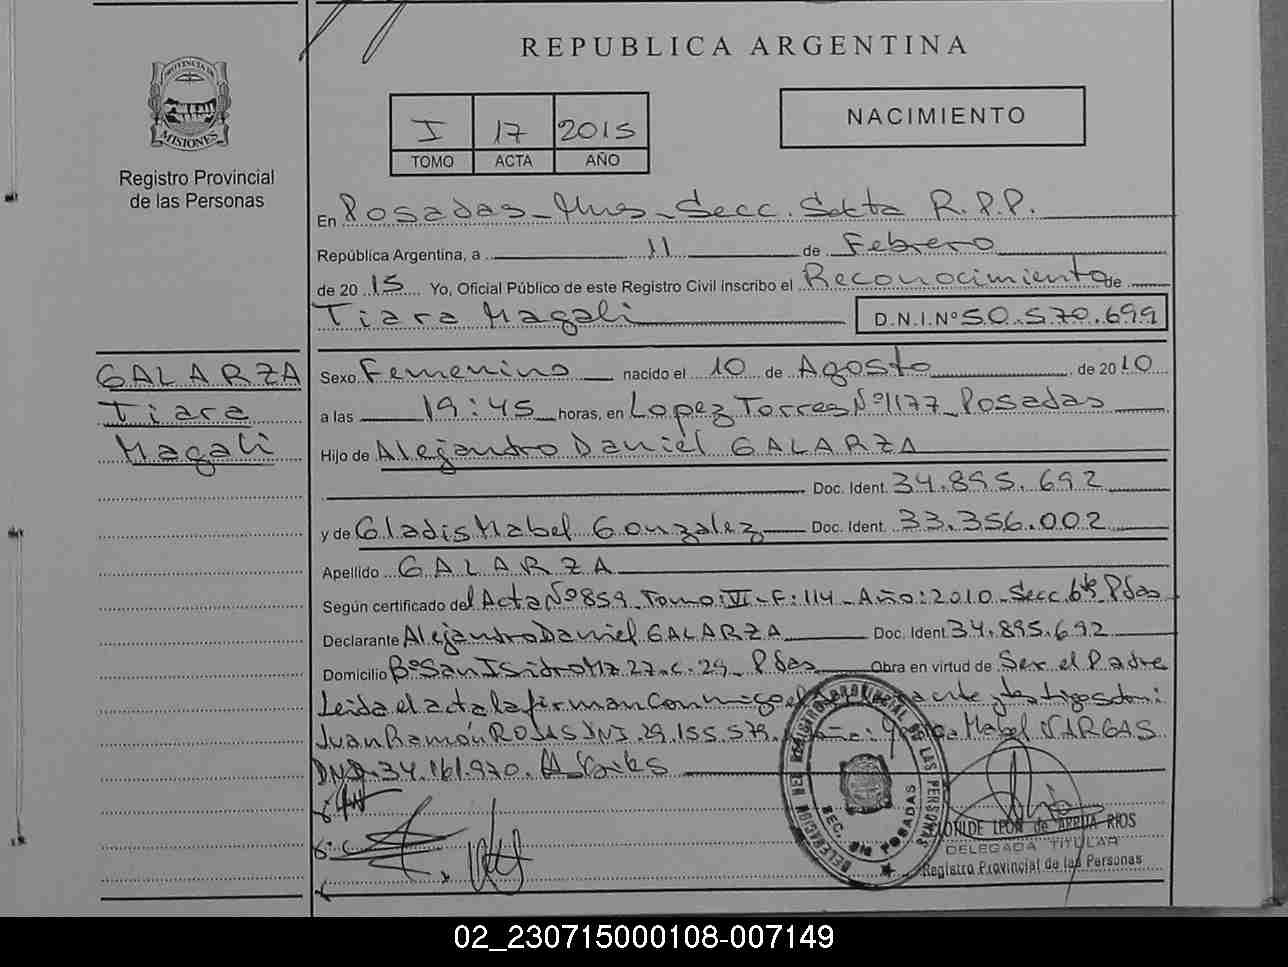 REPUBLICA ARGENTINA
PROVINCIA DE
MISIONES
Registro Provincial
de las Personas
I 17 2015
TOMO ACTA AÑO
NACIMIENTO
En Posadas - Mnes - Secc. Sexta R.P.P.
República Argentina, a 11 de Febrero
de 20 15 Yo, Oficial Público de este Registro Civil inscribo el Reconocimiento de
Tiara Magali D.N.I.Nº 50.570.699
GALARZA
Tiara
Magali
Sexo Femenino nacido el 10 de Agosto de 2010
a las 19:45 horas, en Lopez Torres Nº 1177 - Posadas
Hijo de Alejandro Daniel GALARZA
Doc. Ident. 34.895.692
y de Gladis Mabel Gonzalez Doc. Ident. 33.356.002
Apellido GALARZA
Según certificado del Acta Nº 859 - Tomo: VI - F: 114 - Año: 2010 - Secc 6ta Pdas
Declarante Alejandro Daniel GALARZA Doc. Ident. 34.895.692
Domicilio Bº San Isidro Mz 27 - c. 29 - Pdas Obra en virtud de Ser el Padre
Leida el acta la firman conmigo el y testigos
Juan Ramón ROJAS DNI 29.155.579. Mabel VARGAS
DNI. 34.161.970.
DELEGACION DEL REGISTRO PROVINCIAL DE LAS PERSONAS
SEC. POSADAS
LEON de RIOS
DELEGADA TITULAR
Registro Provincial de las Personas
02_230715000108-007149